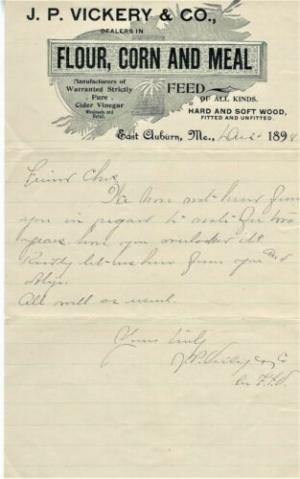 J. P. VICKERY & CO.,
DEALERS IN
FLOUR, CORN AND MEAL
Manufacturers of
Warranted Strictly
Pure
Cider Vinegar
Wholesale and
Retail.
FEED
OF ALL KINDS.
HARD AND SOFT WOOD,
FITTED AND UNFITTED.
East Auburn, Me., 189
Friend Chas
We have not heard from
you in regard to for two
years have you overlooked it
Kindly let us hear from you and
oblige.
All well as usual.
Yours truly
J. P. Vickery & Co